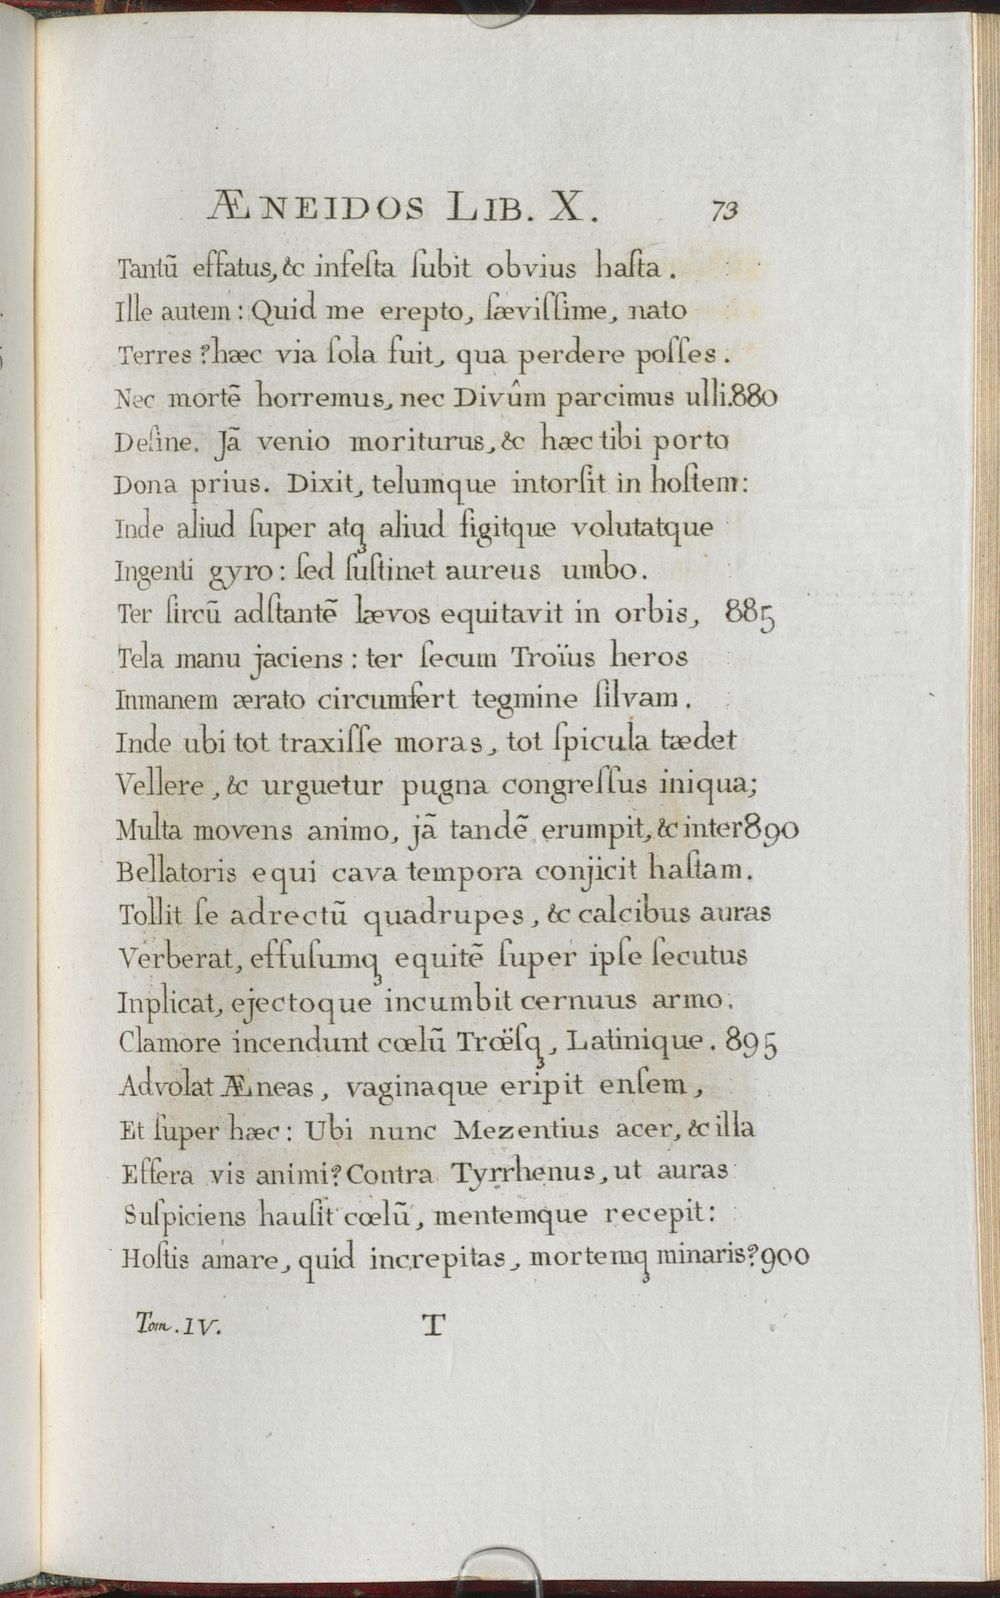 ÆNEIDOS LIB. X. 73
Tantũ effatus, &c infeſta ſubit obvius haſta.
Ille autem: Quid me erepto, ſæviſſime, nato
Terres? hæc via ſola fuit, qua perdere poſſes.
Nec mortẽ horremus, nec Divûm parcimus ulli. 880
Deſine. Jã venio moriturus, &c hæc tibi porto
Dona prius. Dixit, telumque intorſit in hoſtem:
Inde aliud ſuper atqꝫ aliud figitque volutatque
Ingenti gyro: ſed ſuſtinet aureus umbo.
Ter ſircũ adſtantẽ lævos equitavit in orbis, 885
Tela manu jaciens: ter ſecum Troïus heros
Inmanem ærato circumfert tegmine ſilvam.
Inde ubi tot traxiſſe moras, tot ſpicula tædet
Vellere, &c urguetur pugna congreſſus iniqua;
Multa movens animo, jã tandẽ erumpit, &c inter 890
Bellatoris equi cava tempora conjicit haſtam.
Tollit ſe adrectũ quadrupes, &c calcibus auras
Verberat, effuſumqꝫ equitẽ ſuper ipſe ſecutus
Inplicat, ejectoque incumbit cernuus armo.
Clamore incendunt cœlũ Trœ̈ſqꝫ, Latinique. 895
Advolat Æneas, vaginaque eripit enſem,
Et ſuper hæc: Ubi nunc Mezentius acer, &c illa
Effera vis animi? Contra Tyrrhenus, ut auras
Suſpiciens hauſit cœlũ, mentemque recepit:
Hoſtis amare, quid increpitas, mortemqꝫ minaris? 900
Tom. IV. T